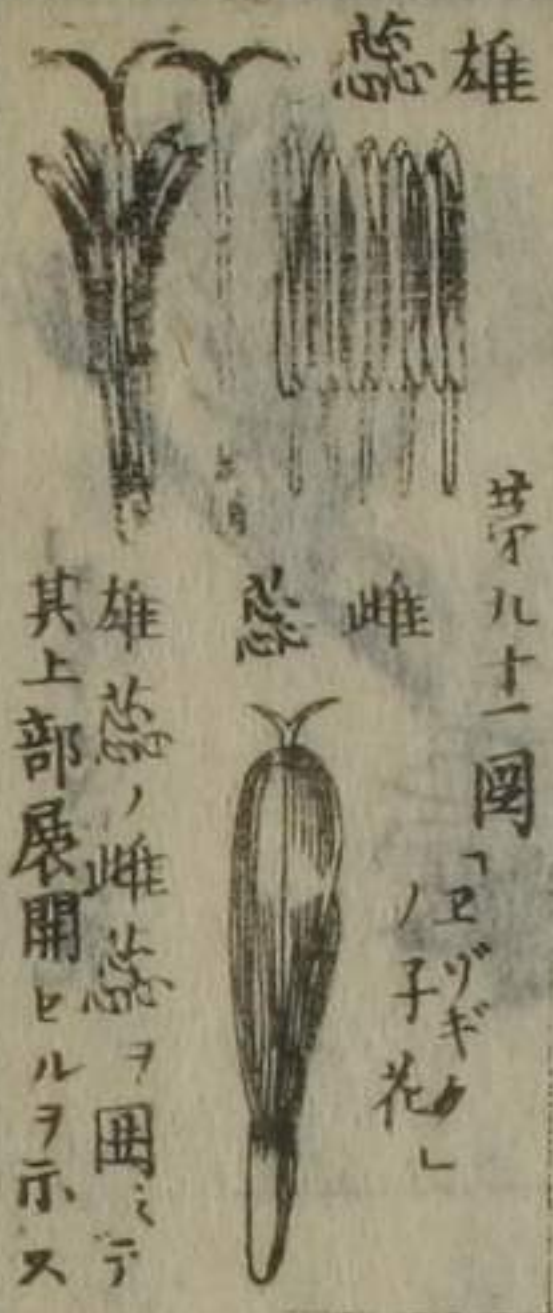 雄蕊
第八十一図
「ヱゾギク
ノ子花」
雌蕊
雄蕊ノ雌蕊ヲ囲ミデ
其上部展開セルヲ示ス